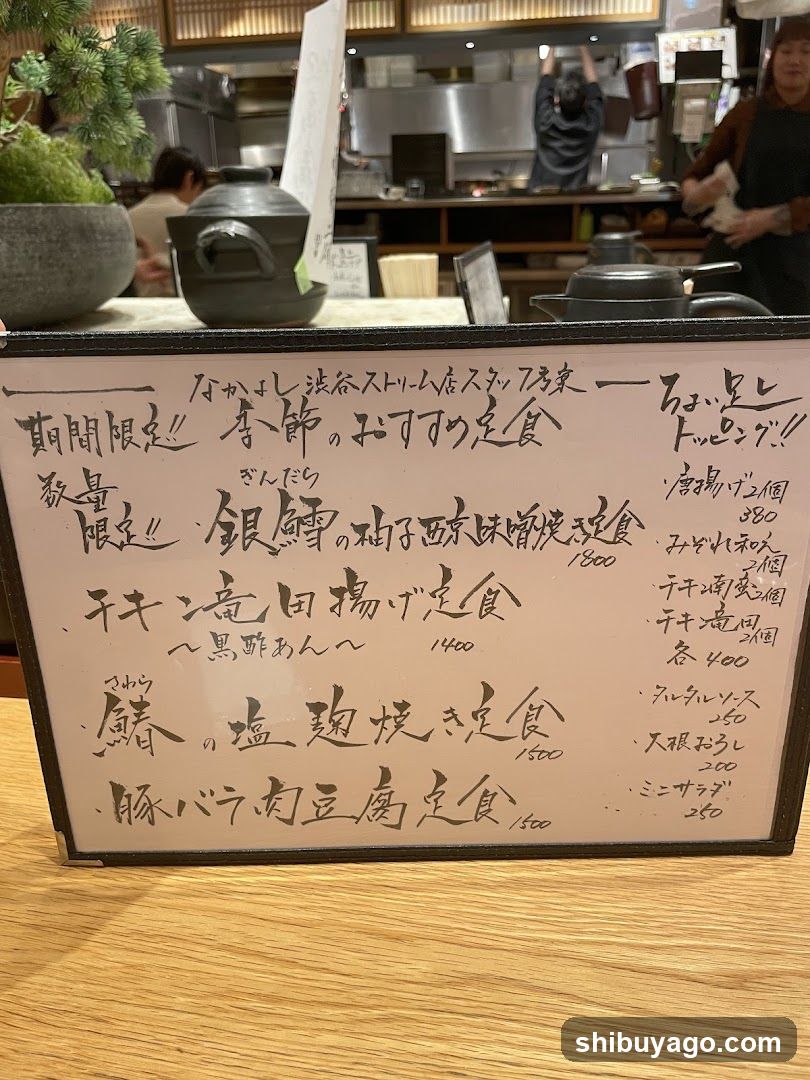 なかよし 渋谷ストリーム店スタッフ考案
期間限定!! 季節のおすすめ定食
数量
限定!!
ぎんだら
・銀鱈の柚子西京味噌焼き定食
1800
・チキン竜田揚げ定食
〜黒酢あん〜 1400
さわら
・鰆の塩麹焼き定食
1500
・豚バラ肉豆腐定食 1500
ちょい足し
トッピング!!
・唐揚げ2個
380
・みぞれ和え
2個
・チキン南蛮2個
・チキン竜田
2個
各400
・タルタルソース
250
・大根おろし
200
・ミニサラダ
250
shibuyago.com